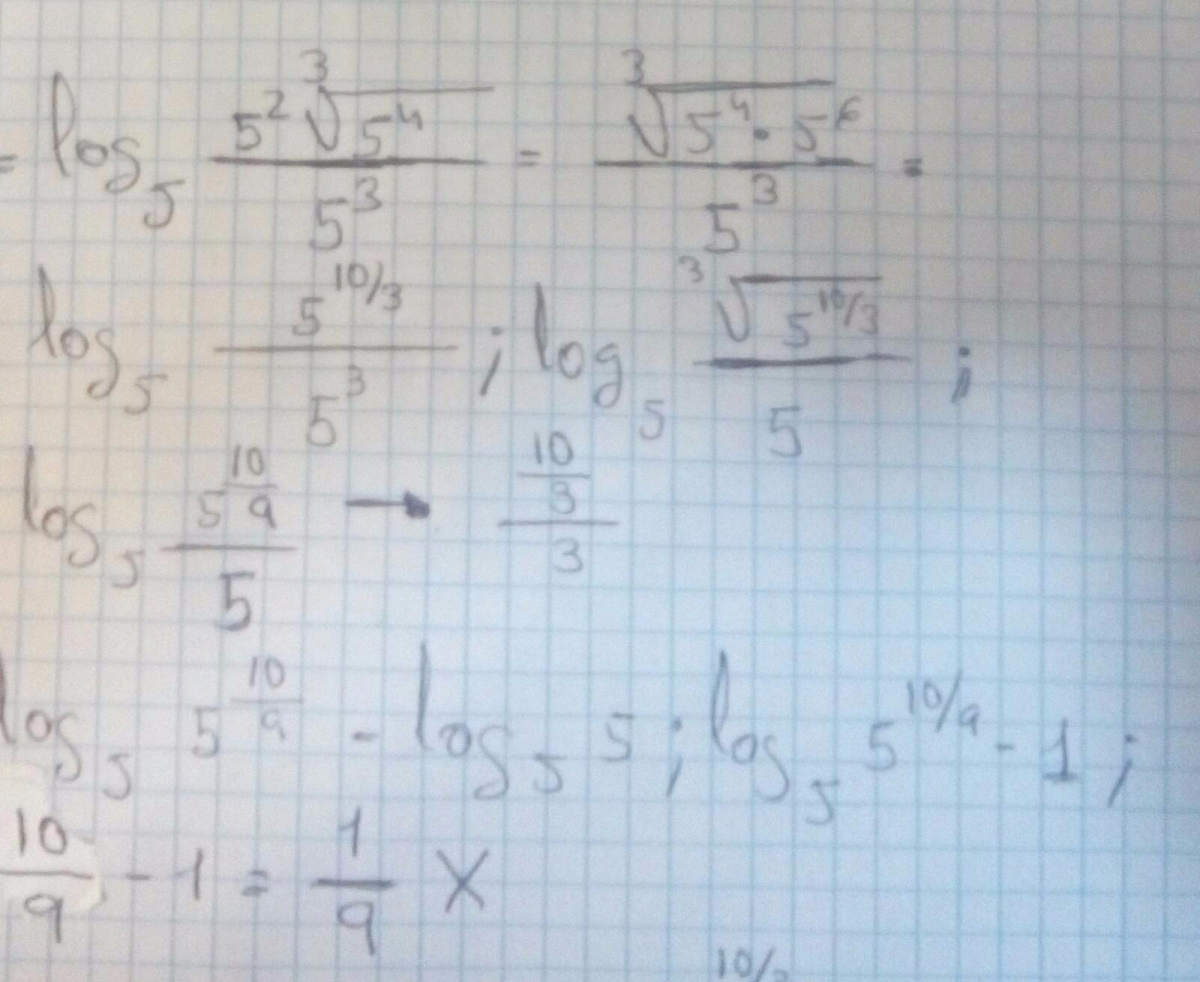 = log₅ (5² ∛(5⁴))/(5³) = (∛(5⁴ · 5⁶))/(5³) =
log₅ (5^(10/3))/(5³) ; log₅ (∛(5^(10/3)))/5 ;
log₅ (5^(10/9))/5 → (10/3)/3
log₅ 5^(10/9) - log₅ 5 ; log₅ 5^(10/9) - 1 ;
10/9 - 1 = 1/9 X
10/